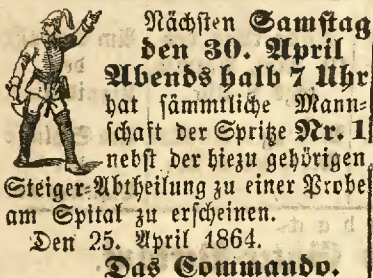 Nächsten Samstag
den 30. April
Abends halb 7 Uhr
hat sämmtliche Mann-
schaft der Spritze Nr. 1
nebst der hiezu gehörigen
Steiger-Abtheilung zu einer Probe
am Spital zu erscheinen.
Den 25. April 1864.
Das Commando.